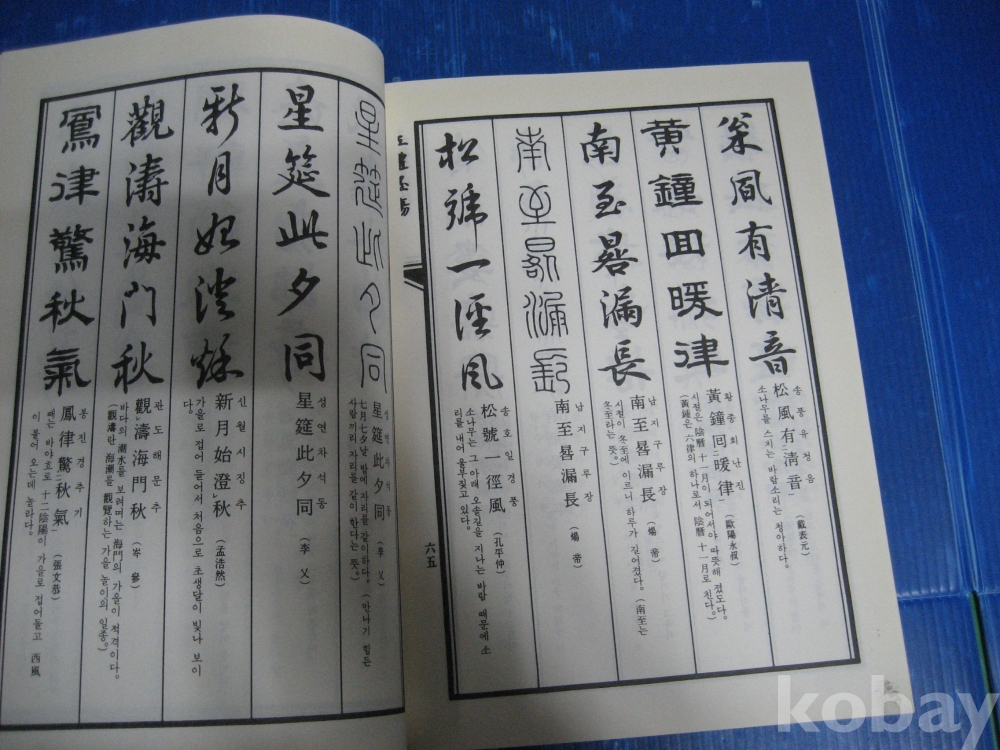 松風有清音
송풍유청음
松風有淸音 (戴表元)
소나무를 스치는 바람소리는 청아하다.
黃鐘回暖律
황종회난율
黃鐘回暖律 (歐陽永叔)
시절은 陰曆 十一月이 되어서야 따뜻해 졌도다.
(黃鍾은 六律의 하나로서 陰曆 十一月로 친다.)
南至晷漏長
남지구루장
南至晷漏長 (煬帝)
시절이 冬至에 이르니 하루가 길어졌다. (南至는
冬至라는 뜻.)
南至晷漏長
南至晷漏長 (煬帝)
松號一徑風
송호일경풍
松號一徑風 (孔平仲)
소나무는 그 아래 오솔길을 지나는 바람 때문에 소
리를 내어 울부짖고 있다.
六五
星筵此夕同
성연차석동
星筵此夕同
七月七夕날 밤에 자리를 같이하다. (만나기 힘든
사람끼리 자리를 같이 한다는 뜻.)
星筵此夕同
성연차석동
星筵此夕同 (李乂)
新月始澄秋
신월시징추
新月始澄秋 (孟浩然)
가을로 접어 들어서 처음으로 초생달이 빛나 보이
다.
觀濤海門秋
관도해문추
觀濤海門秋 (岑參)
바다의 潮水를 보려며는 海門의 가을이 적격이다.
(觀濤란 海潮를 觀覽하는 가을 놀이의 일종.)
鳳律驚秋氣
봉진경추기
鳳律驚秋氣 (張文恭)
때는 바야흐로 十二陰陽이 가을로 접어들고 西風
이 불어 오는데 놀라다.
kobay